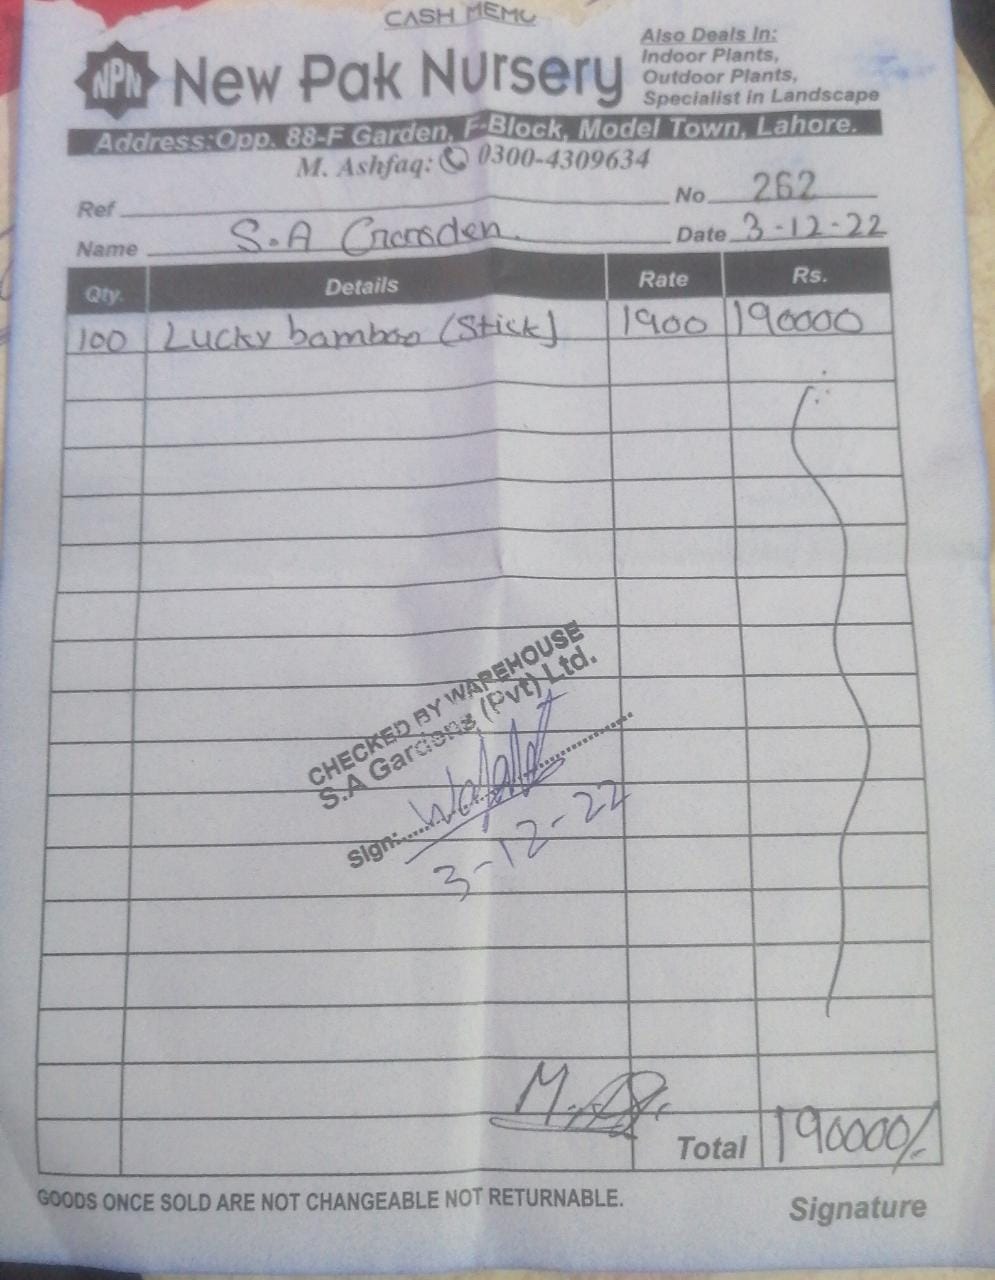 CASH MEMO
NPN New Pak Nursery
Also Deals In:
Indoor Plants,
Outdoor Plants,
Specialist in Landscape
Address:Opp. 88-F Garden, F-Block, Model Town, Lahore.
M. Ashfaq: 0300-4309634
Ref No 262
Name S.A Garden Date 3-12-22
Qty. Details Rate Rs.
100 Lucky bamboo (Stick) 1900 190000
CHECKED BY WAREHOUSE
S.A Gardens (Pvt) Ltd.
Sign:
3-12-22
Total 190000/-
GOODS ONCE SOLD ARE NOT CHANGEABLE NOT RETURNABLE.
Signature